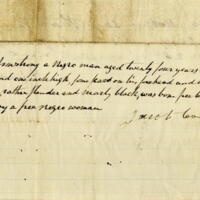 Armstrong a Negro man aged twenty four years
and one inch high four scars on his forehead and
rather slender and nearly black, was born free b
by a free negro woman
Jacob